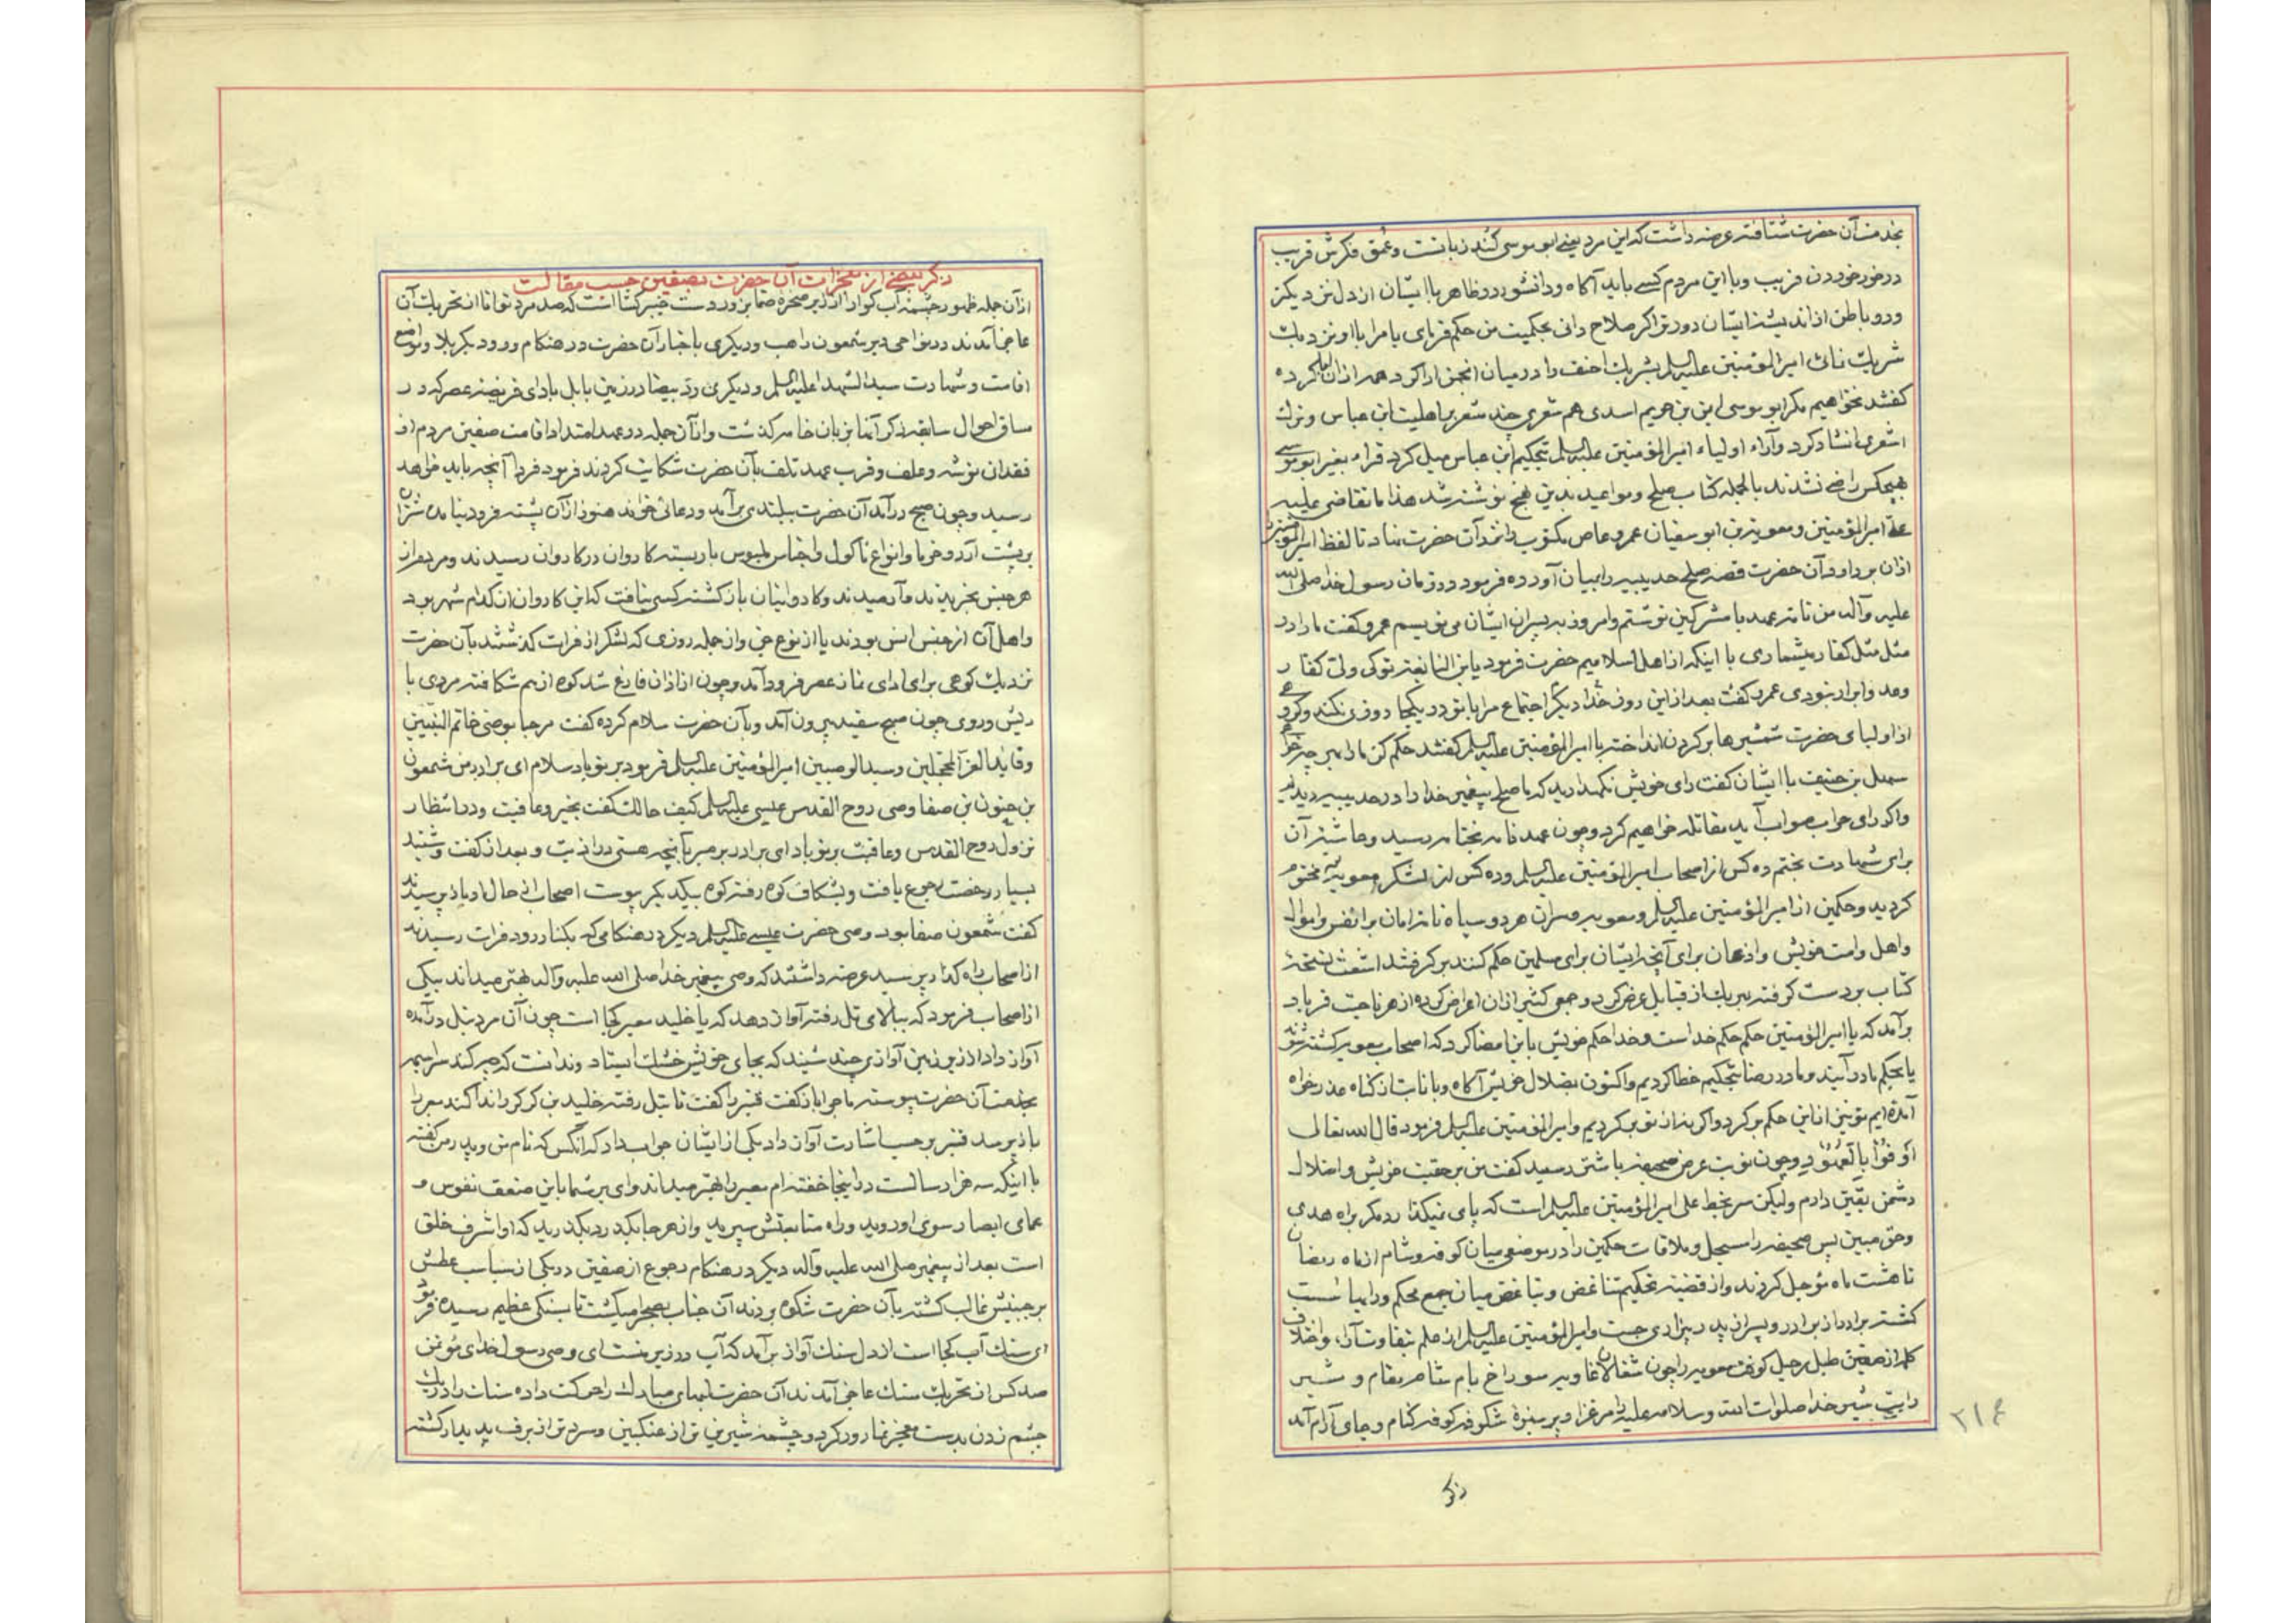 بخدمت آن حضرت شتافته عرضه داشت که این مرد یعنی ابو موسی کُند زبانست و عمق فکرش قریب
در خور خوردن فریب و با این مردم کسی باید آگاه و دانشور در ظاهر با ایشان از دل من دیکتر
و در باطن از اندیشه ایشان دورتر اکر صلاح دانی بحکمیت من حکم فرمای یا مرا با او نزدیک
شریک نمائی امیرالمؤمنین علیه السلم احنف را در میان انجمن ادا کرد همه از ان کرده
کفتند نخواهیم مکر ابو موسی ابن بن حریم اسدی هم شعری چند مشعر با هلیت ابن عباس و ترک
اشعری انشاد کرد و آراء اولیاء امیرالمؤمنین علیه السلم بتحکیم ابن عباس میل کرد قراء بغیر ابو موسی
بهیچکس راضی نشدند بالجمله کتاب صلح و مواعید بدین نهج نوشته شد هذا ما تقاضی علیه
علی امیرالمؤمنین و معویة بن ابو سفیان عمرو عاص مکتوب دانمدآن حضرت نهاد تا لفظ امیرالمؤمنین
ازان بردارد آن حضرت قصه صلح حدیبیه را ببیان آورده فرمود در زمان رسول خدا صلی الله
علیه وآله من نامه عهد با مشرکین نوشتم و امروز به پسران ایشان می نویسم عمرو کفت ما را در
مثل مثل کفار میشماری با اینکه از اهل اسلامیم حضرت فرمود یابن النابغه تو کی ولی کفار
و عدو ابرار نبودی عمرو کفت بعد از این روز خدا دیکر اجتماع مرا با تو در یکجا روزی نکند وکروهی
از اولیای حضرت شمشیرها بر کردن انداخته با امیرالمؤمنین علیه السلم کفتند حکم کن ما را بهر چه خواهی
سهل بن حنیف با ایشان کفت رای خویش نکهدارید که ما صلح پیغمبر خدا را در حدیبیه دیدیم
واکر رای حرب صواب آید مقاتله خواهیم کرد و چون عهد نامه بختامه رسید و حاشیه آن
برای شهادت بختم ده کس از اصحاب امیرالمؤمنین علیه السلم و ده کس از لشکر معویه مختوم
کردید و حکمین از امیرالمؤمنین علیه السلم و معویه و سران هر دو سپاه نامه امان بر انفس و اموال
و اهل و امت خویش و اذعان برای آنچه ایشان برای مسلمین حکم کنند بر کرفتند اشعث نسخه
کتاب بر دست کرفته بهر یک از قبایل عرض کرد و جمعی کثیر ازان اعراض کرده از هر ناحیت فریاد
برآمد که یا امیرالمؤمنین حکم حکم خداست و خدا حکم خویش باین امضا کرد که اصحاب معویه کشته شوند
یا بحکم ما درآیند و ما در رضا بتحکیم خطا کردیم و اکنون بضلال خویش آکاه و با نابت از کناه عذر خواه
آمده ایم تو نیز از این حکم بر کرد و اکر نه از تو بر کردیم و امیرالمؤمنین علیه السلم فرمود قال الله تعالی
اَوْفُوْا بِالْعُقُوْدِ و چون نوبت عرض صحیفه با شتر رسید کفت من بر حقیت خویش و اضلال
دشمن یقین دارم ولیکن سر بخط علی امیرالمؤمنین علیه السلم است که پای نیکذارد مکر براه هدی
و حق مبین پس صحیفه را مسجل و ملاقات حکمین را در موضعی میان کوفه و شام از ماه رمضان
تا هشت ماه مؤجل کردند و از قضیه تحکیم تناغض و تباغض میان جمع محکم و رایها سست
کشته برادر از برادر و پسر از پدر بیزاری جست و امیرالمؤمنین علیه السلم از علم بتفاوت آراء و اختلاف
کلمه از صفین طبل رحیل کوفت معویه را چون شغالان غاویه سوراخ بام شام مقام و شیر
رایت شیر خدا صلوات الله و سلامه علیه را مرغزار بر سبزۀ شکوفه کوفه کنام و جای آرام آمد
۲۱۶
ذکر
ذکر بعضی از معجزات آن حضرت بصفین حسب مقالت
از آن جمله ظهور چشمه آب کوارا از زیر صخره صما بزور دست خیبر کشا است که صد مرد توانا از تحریک آن
عاجز آمدند در نواحی دیر شمعون راهب و دیکری با خبار آن حضرت در هنکام ورود بکربلا و مواضع
اقامت و شهادت سیدالشهدا علیه السلم و دیکری رد بیضا در زمین بابل با دای فریضه عصر که در
مساق احوال سابقه ذکر آنها بزبان خامه کذشت و از آن جمله در عهد امتداد اقامت صفین مردم از
فقدان توشه و علف و قرب عهد تلف بآن حضرت شکایت کردند فرمود فردا آنچه باید خواهد
رسید و چون صبح درآمد آن حضرت ببلندی برآمد و دعائی خواند هنوز از آن پشته فرود نیامده شتران
بر پشت آرد و خرما و انواع مأکول و اجناس ملبوس بار بسته کاروان در کاروان رسیدند و مردم از
هر جنس بخریدند و آرمیدند و کاروانیان باز کشته کسی نیافت که این کاروان از کدام شهر بود
و اهل آن از جنس انس بودند یا از نوع جن و از جمله روزی که لشکر از فرات کذشتند بآن حضرت
نزدیک کوهی برای ادای نماز عصر فرود آمد و چون از اذان فارغ شد کوه از هم شکافته مردی با
ریش و روی چون صبح سفید بیرون آمد و بآن حضرت سلام کرده کفت مرحبا بوصی خاتم النبیین
و قاید الغر المحجلین و سید الوصیین امیرالمؤمنین علیه السلم فرمود بر تو باد سلام ای برادر من شمعون
بن حنون بن صفا وصی روح القدس عیسی علیه السلم کیف حالک کفت بخیر و عافیت و در انتظار
نزول روح القدس و عاقبت بر تو باد ای برادر بر صبر بآنچه هستی در اذیت و بعد از کفت و شنید
بسیار رخصت رجوع یافت و بشکاف کوه رفته کوه بیکدیکر پیوست اصحاب از حال او باز پرسیدند
کفت شمعون صفا بود وصی حضرت عیسی علیه السلم دیکر در هنکامی که بکنار رود فرات رسیدند
از اصحاب راه کذار پرسید عرضه داشتند که وصی پیغمبر خدا صلی الله علیه وآله بهتر میداند بیکی
از اصحاب فرمود که ببالای تل رفته آواز دهد که یا خلید معبر کجا است چون آن مرد بتل درآمده
آواز داد از زیر زمین آوازی چند شنید که بجای خویش خشک ایستاد و ندانست که چه کند سراسیمه
بخدمت آن حضرت پیوسته ماجرا باز کفت قنبر را کفت تا بتل رفته خلید بن کرکر را ندا کند معبر را
باز پرسد قنبر بر حسب اشارت آواز داد یکی از ایشان جواب داد که آنکس که نام من و پدر من کفته
با اینکه سه هزار سالست در اینجا خفته ام معبر را بهتر میداند وای بر شما باین ضعف نفوس و
عمای ابصار سوی او روید و راه متابعتش سپرید و از هر جا بکذرد بکذرید که او اشرف خلق
است بعد از پیغمبر صلی الله علیه وآله دیکر در هنکام رجوع از صفین در یکی از سباسب عطش
بر جیش غالب کشته بآن حضرت شکوه بردند آن جناب بصحرا میکشت تا بسنکی عظیم رسیده فرمود
ای سنک آب کجا است از دل سنک آواز برآمد که آب در زیر منست ای وصی رسول خدای مؤتمن
صد کس از تحریک سنک عاجز آمدند آن حضرت لبهای مبارک را حرکت داده سنک را در یک
چشم زدن بدست معجز نما دور کرد و چشمه شیرین تر از عنکبین و سردتر از برف پدیدار کشته